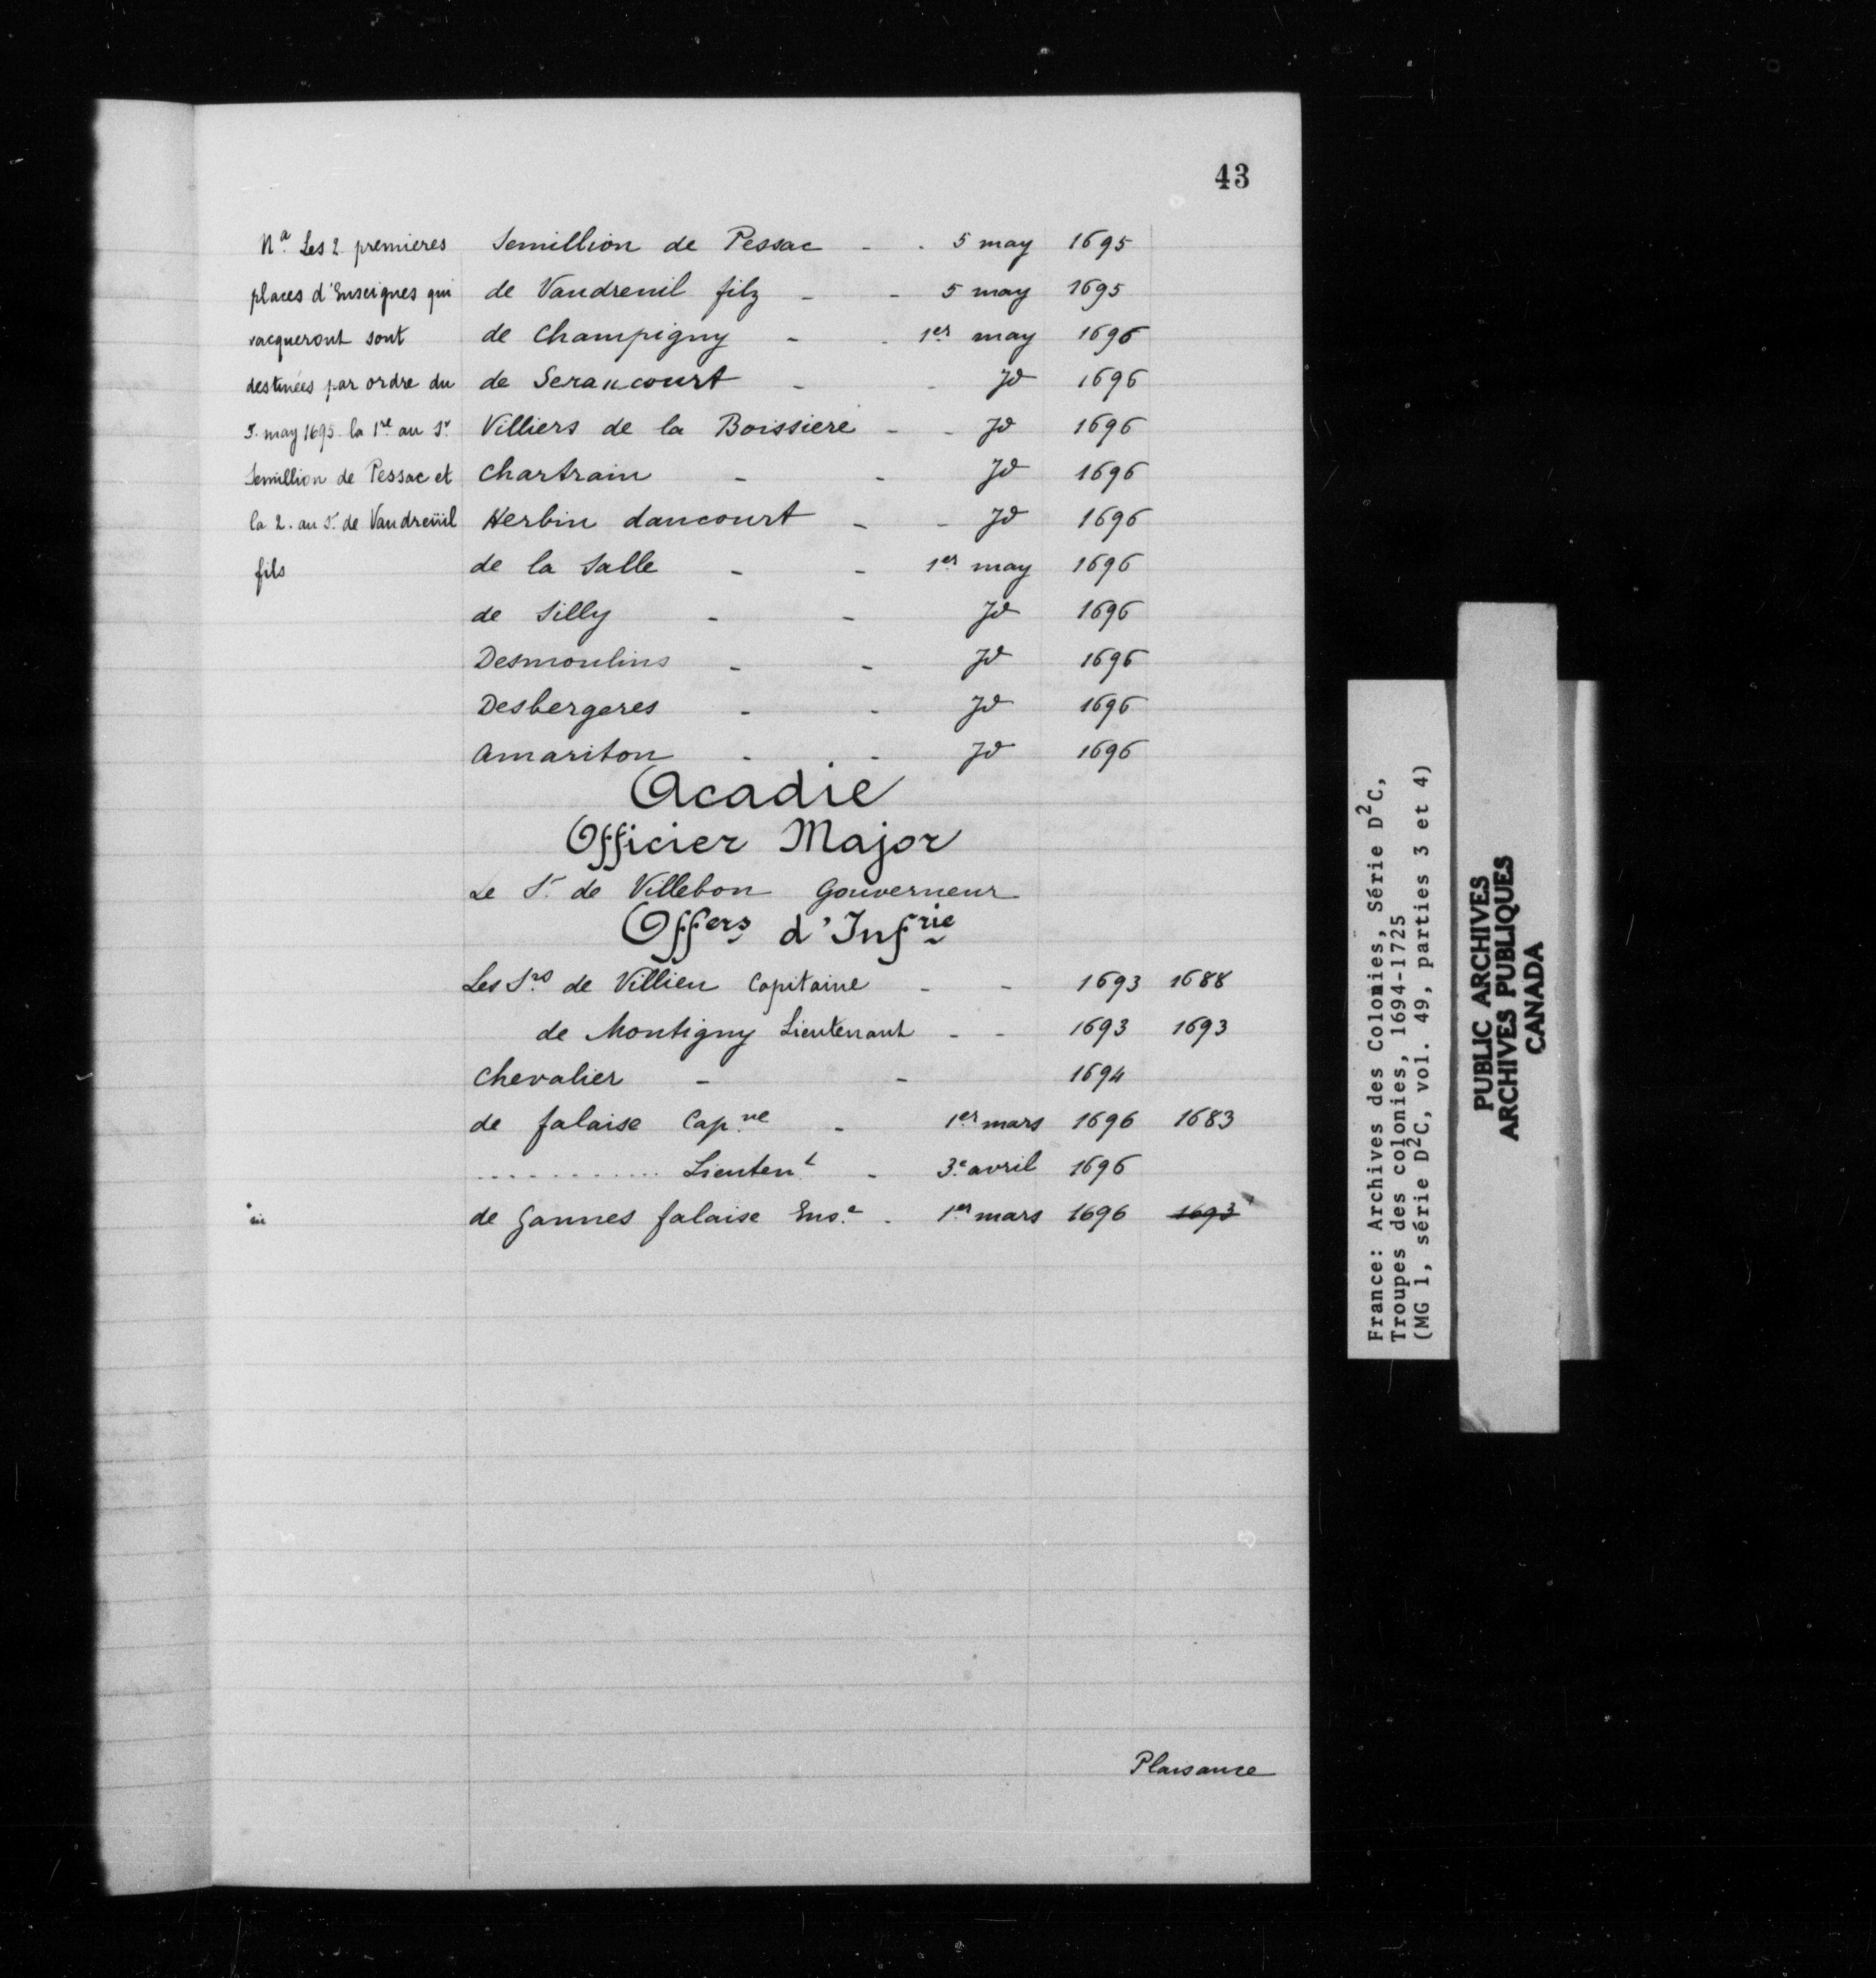 43
Nª. Les 2 premieres
places d'Enseignes qui
vacqueront sont
destinées par ordre du
5. may 1695. la 1re au Sr.
Semillion de Pessac et
la 2. au Sr. de Vaudreüil
fils
Semillion de Pessac - - 5 may 1695
de Vaudreuil filz - - 5 may 1695
de Champigny - - 1er may 1696
de Seraucourt - - Jd 1696
Villiers de la Boissiere - - Jd 1696
Chartrain - - Jd 1696
Herbin dancourt - - Jd 1696
de la Salle - - 1er may 1696
de Silly - - Jd 1696
Desmoulins - - Jd 1696
Desbergeres - - Jd 1696
Amariton - - Jd 1696
Acadie
Officier Major
Le Sr. de Villebon Gouverneur
Offers d'Infrie
Les Srs de Villieu Capitaine - - 1693 1688
de Montigny Lieutenant - - 1693 1693
Chevalier - - 1694
de falaise Cap.ne - 1er mars 1696 1683
............ Lieutent - 3e. avril 1696
de Gannes falaise Ens.e - 1er mars 1696 1693
Plaisance
France: Archives des Colonies, Série D2C,
Troupes des colonies, 1694-1725
(MG 1, série D2C, vol. 49, parties 3 et 4)
PUBLIC ARCHIVES
ARCHIVES PUBLIQUES
CANADA